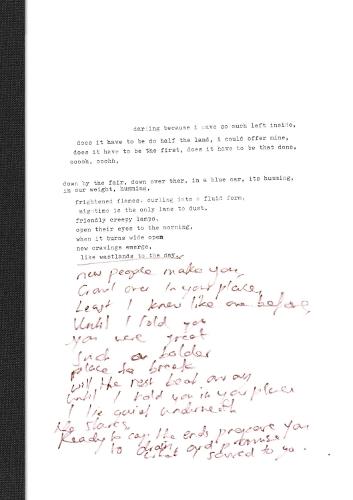 darling because i have so much left inside,
does it have to be do half the land, i could offer mine,
does it have to be the first, does it have to be that done,
ooooh, ooohh,
down by the fair, down over ther, in a blue car, its humming,
in our weight, humming,
frightened flames, curling into a fluid form,
nigtime is the only lane to dust,
friendly creepy lanes,
open their eyes to the morning,
when it burns wide open
new cravings emerge,
like wastlands to the day,
new people make you,
Crawl over in your place,
Least I knew like one before,
Until I told you
you were great
Such a colder
place to break
will the rest beat away
Until I told you in your place
I lie quiet underneath
the stares
Ready to cap the ends prepare you
to and promise
what I scared to you.